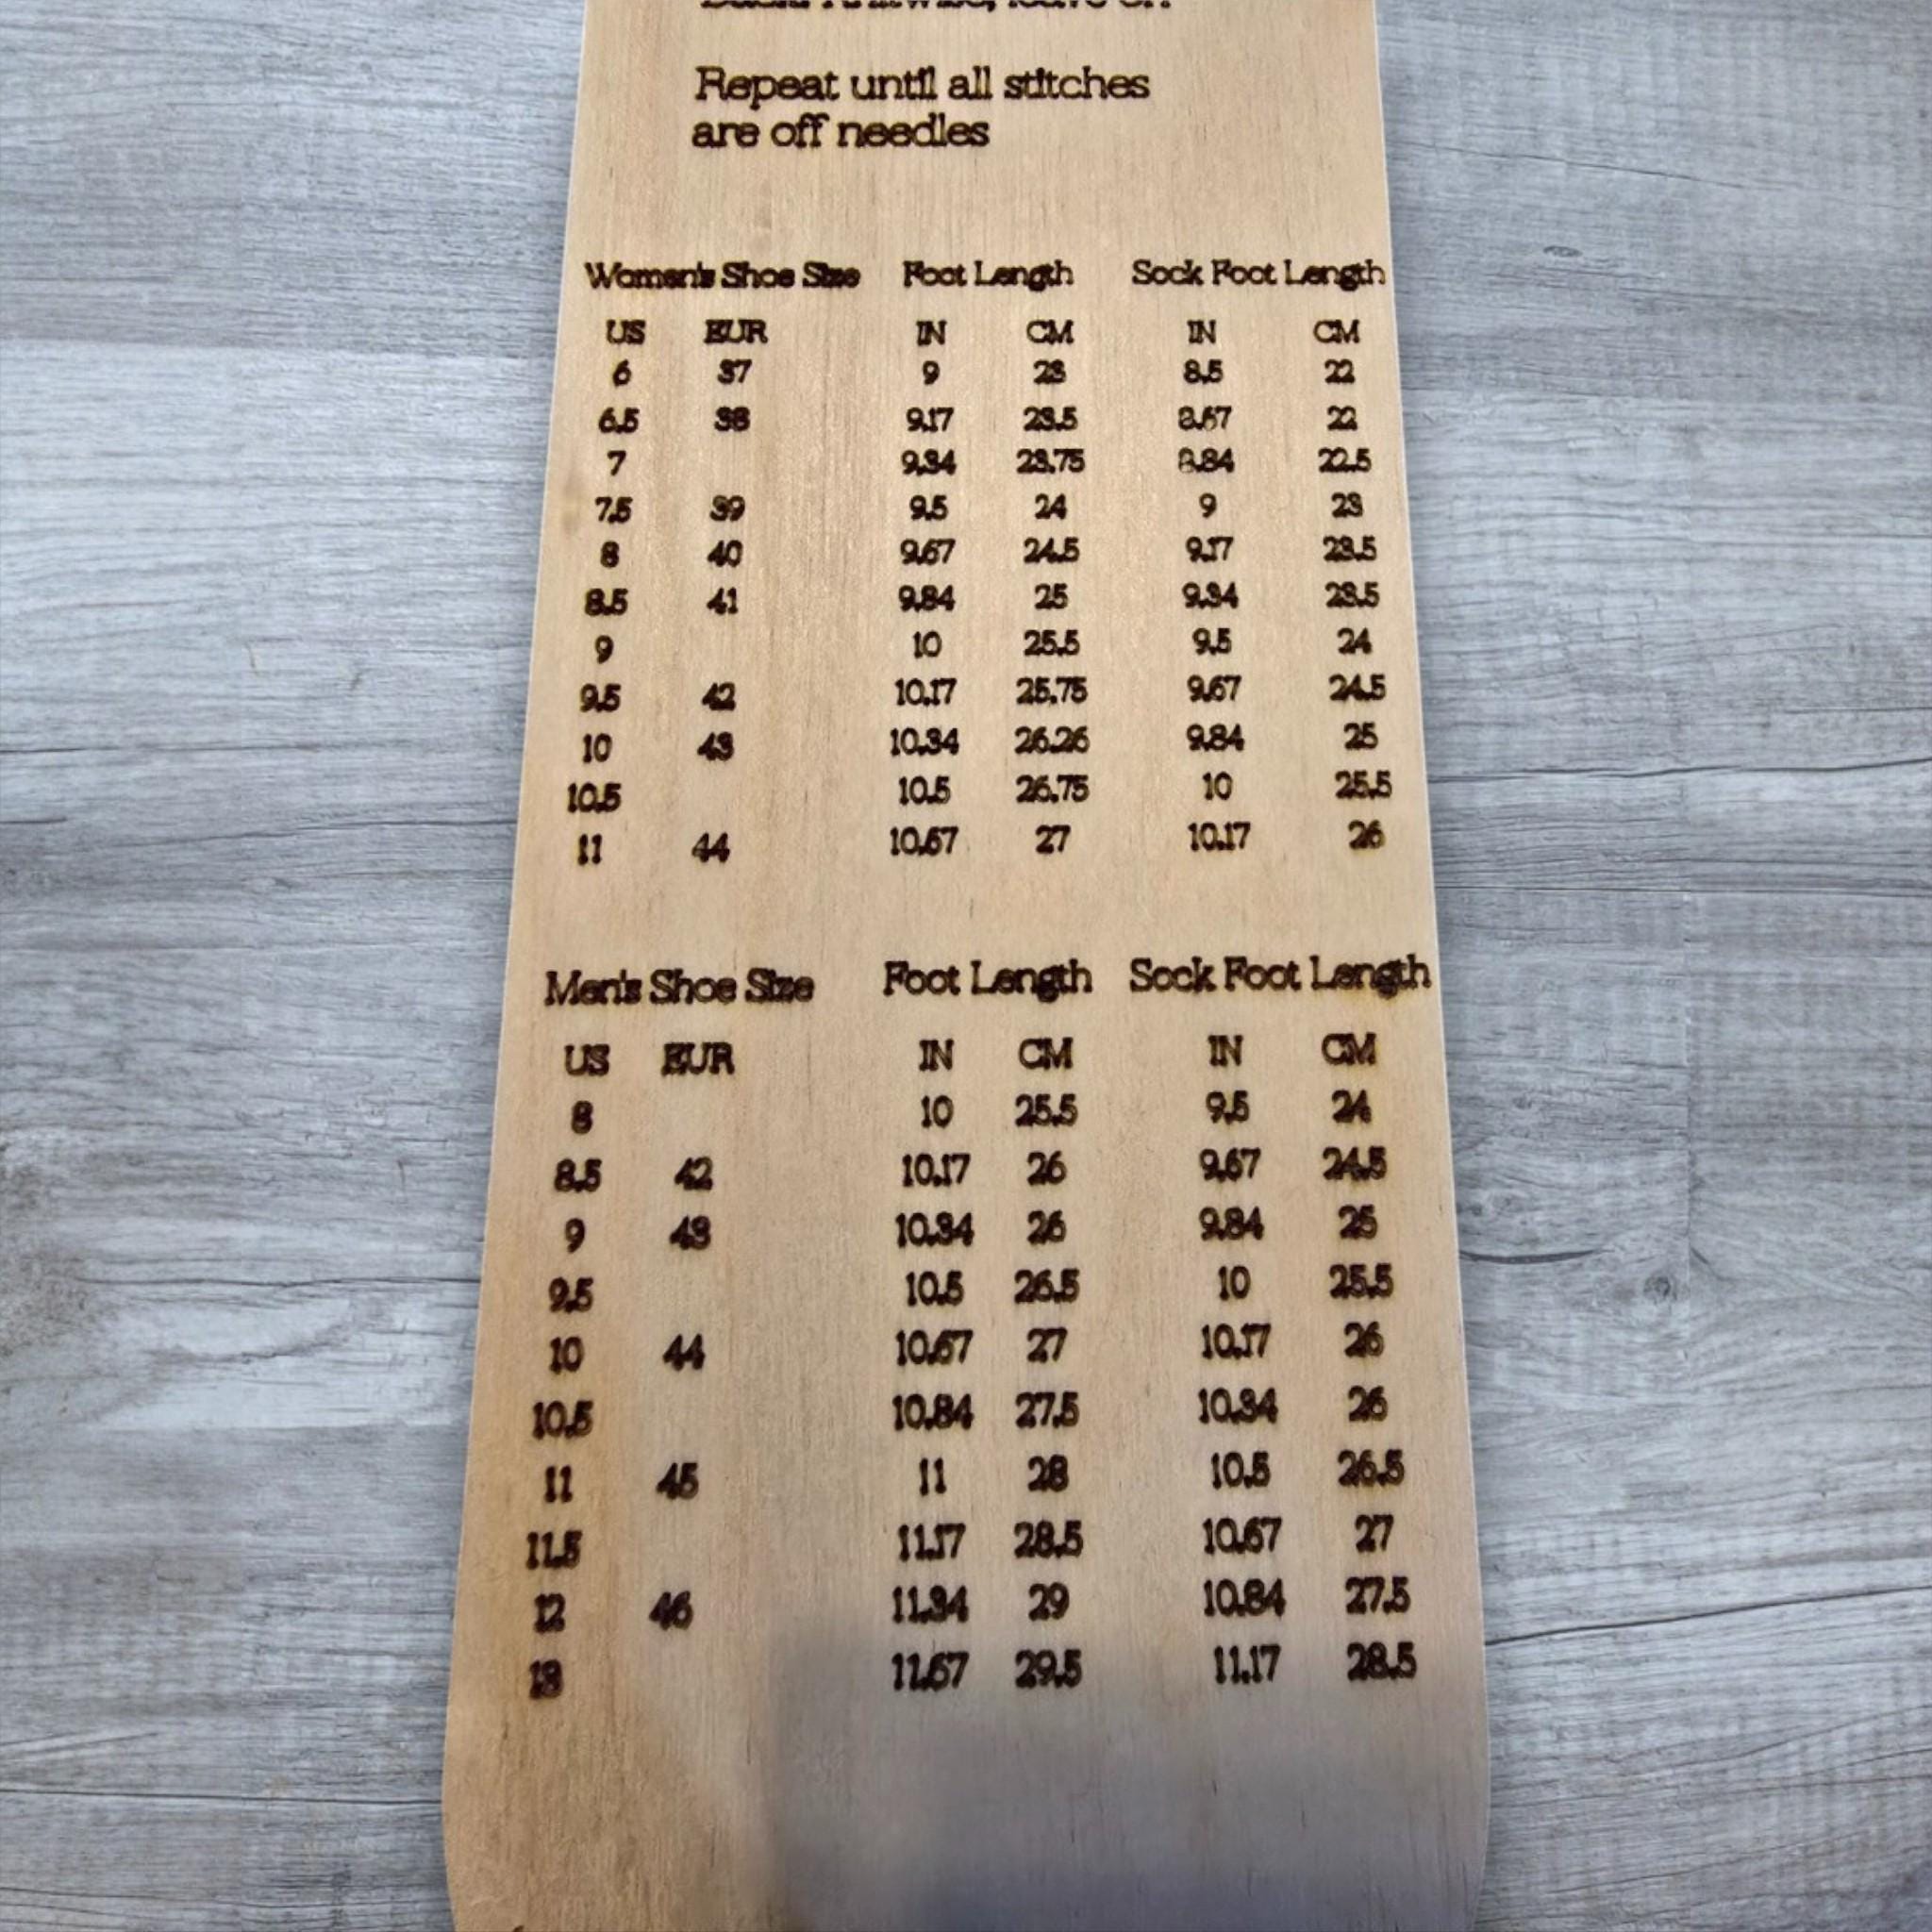 Repeat until all stitches
are off needles
Women's Shoe Size Foot Length Sock Foot Length
US EUR IN CM IN CM
6 37 9 23 8.5 22
6.5 38 9.17 23.5 8.67 22
7 9.34 23.75 8.84 22.5
7.5 39 9.5 24 9 23
8 40 9.67 24.5 9.17 23.5
8.5 41 9.84 25 9.34 23.5
9 10 25.5 9.5 24
9.5 42 10.17 25.75 9.67 24.5
10 43 10.34 26.26 9.84 25
10.5 10.5 26.75 10 25.5
11 44 10.67 27 10.17 26
Men's Shoe Size Foot Length Sock Foot Length
US EUR IN CM IN CM
8 10 25.5 9.5 24
8.5 42 10.17 26 9.67 24.5
9 43 10.34 26 9.84 25
9.5 10.5 26.5 10 25.5
10 44 10.67 27 10.17 26
10.5 10.84 27.5 10.34 26
11 45 11 28 10.5 26.5
11.5 11.17 28.5 10.67 27
12 46 11.34 29 10.84 27.5
13 11.67 29.5 11.17 28.5